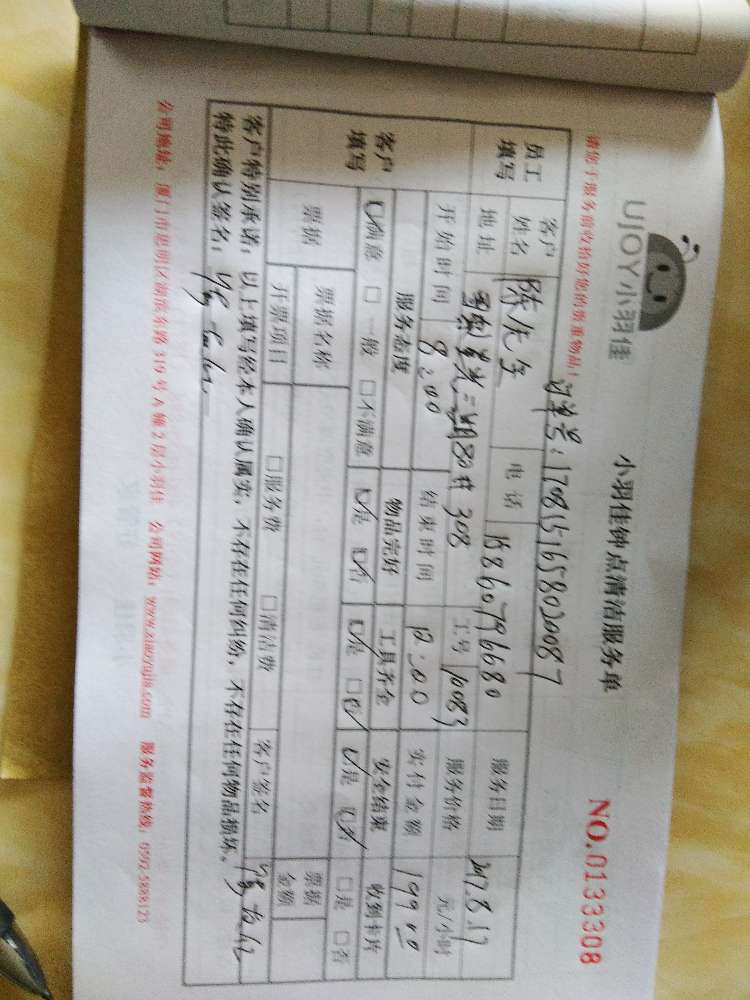 UJOY小羽佳
小羽佳钟点清洁服务单
NO.0133308
请您于服务前收拾好您的贵重物品!
订单号:1708151658020087
员工填写
客户姓名 陈先生 电话 15860796680 服务日期 2017.8.17
地址 三期80# 308 工号 10083 服务价格 元/小时
开始时间 8:00 结束时间 12:00 实付金额 199.00
客户填写
服务态度 物品完好 工具齐全 安全结束 收到卡片
☑满意 □一般 □不满意 ☑是 ☑否 ☑是 ☑否 ☑是 ☑否 □是 □否
票据 票据名称 □服务费 □清洁费 客户签名 票据金额
开票项目
客户特别承诺:以上填写经本人确认属实,不存在任何纠纷,不存在任何物品损坏。
特此确认签名:
公司地址:厦门市思明区湖滨东路319号A幢2层小羽佳 公司网站:www.xiaoyujia.com 服务监督热线:0592-5888123